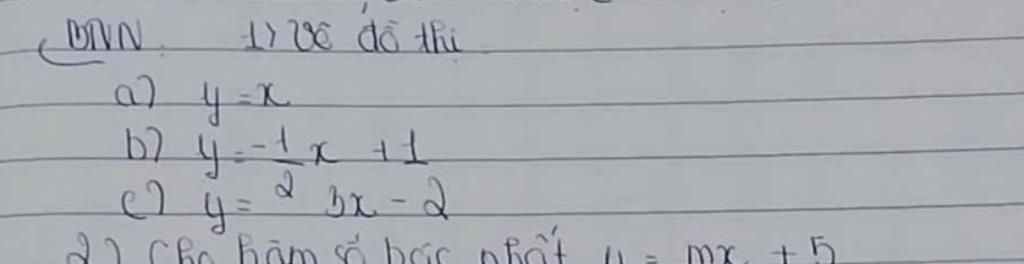 BNN. 1) Vẽ đồ thị
a) y = x
b) y = -1/2 x + 1
c) y = 3x - 2
2) Cho hàm số bậc nhất y = mx + 5